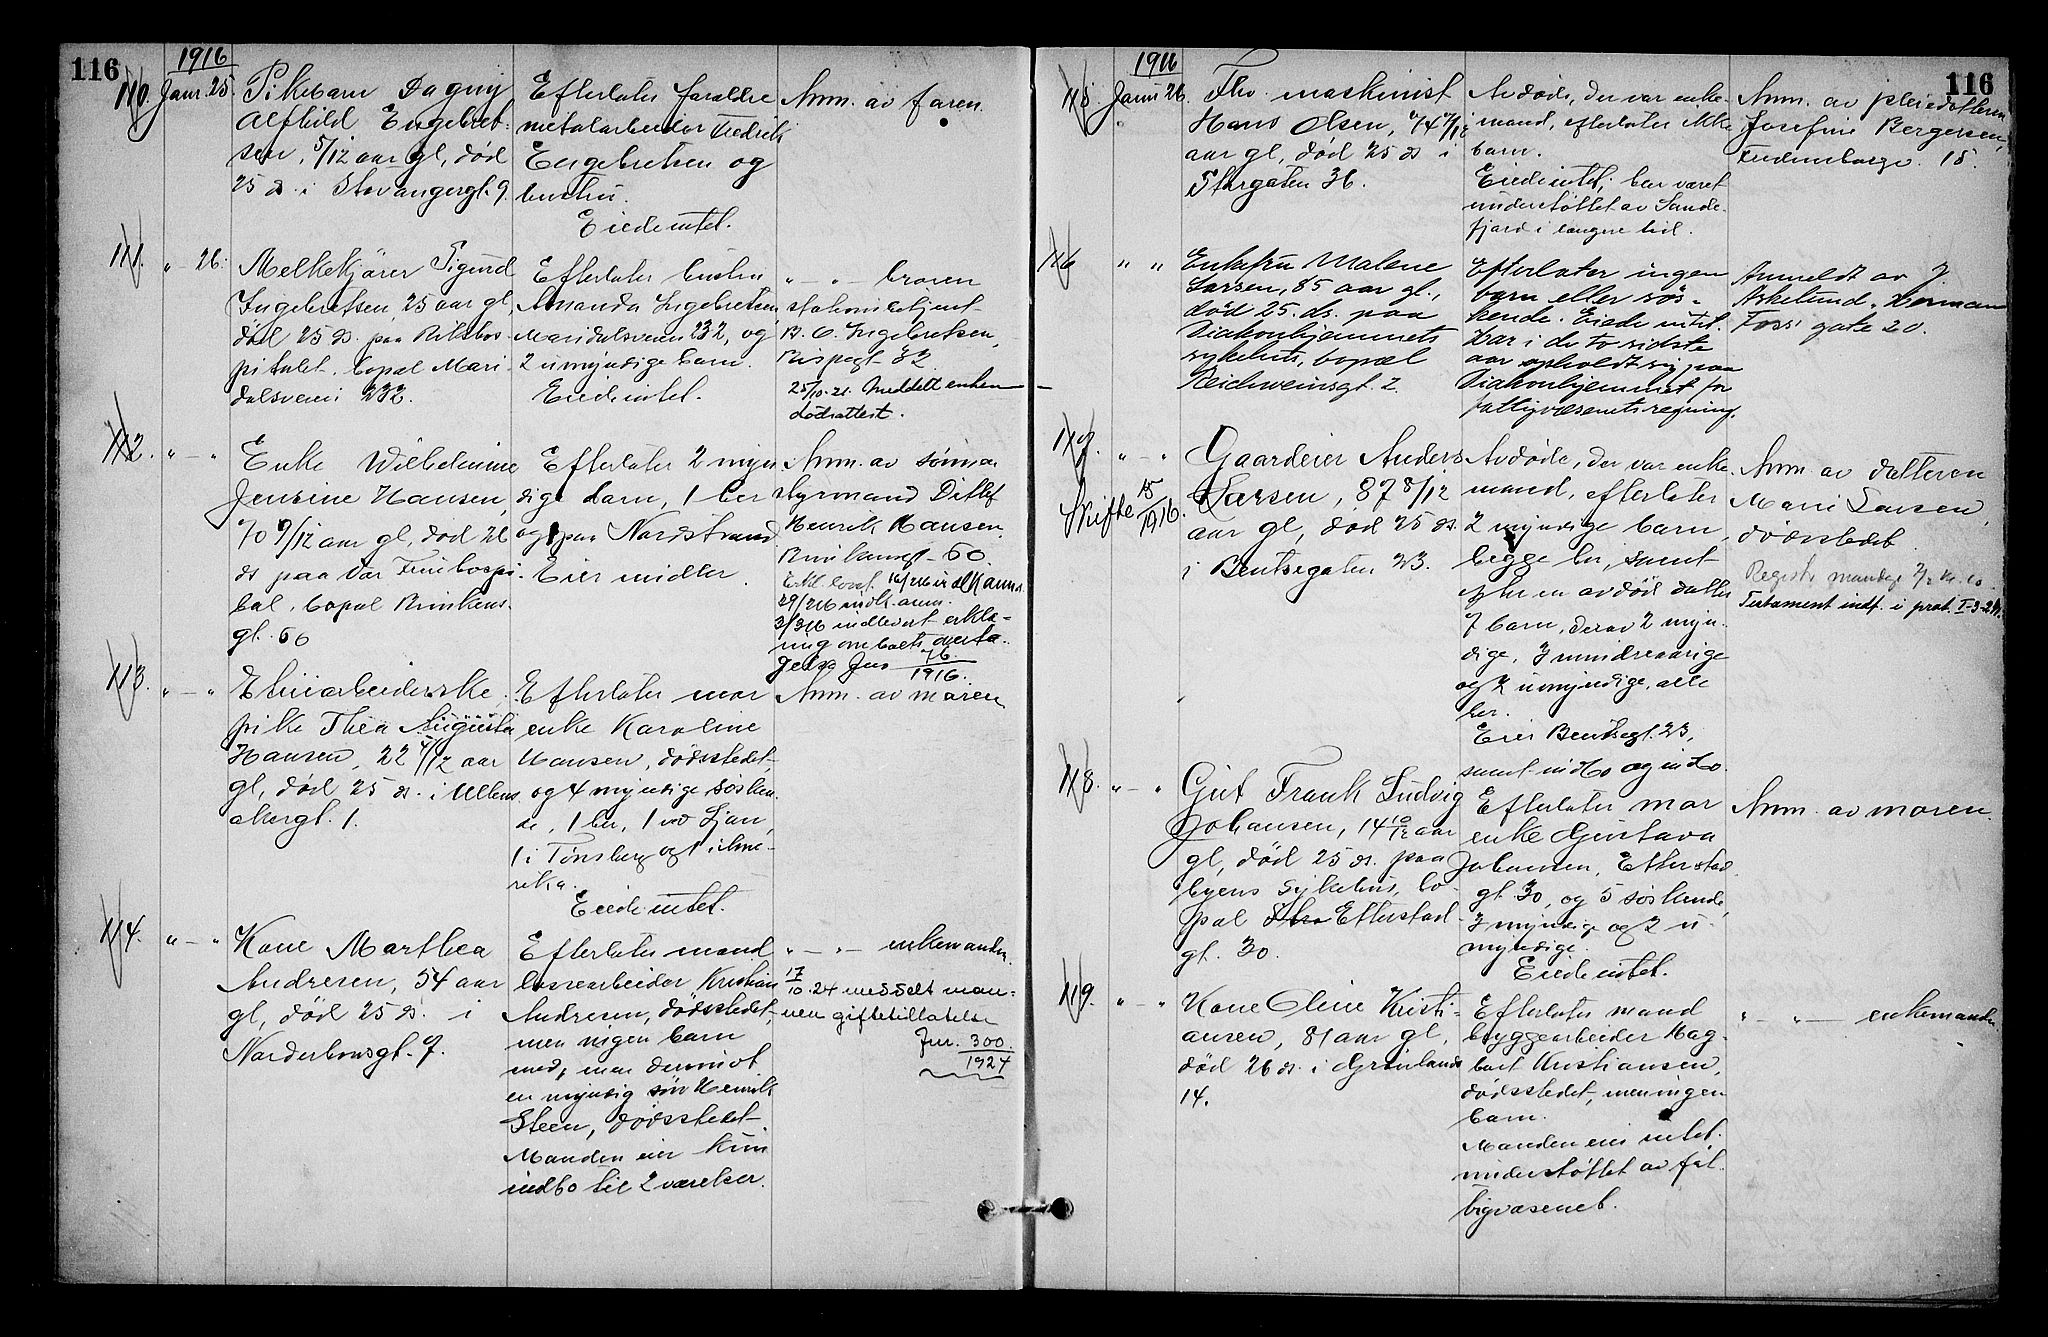 116
1916
110. Janr. 25.
Pikebarn Dagny
Alfhild Engebret-
sen, 5/12 aar gl, død
25 ds. i Stavangergt. 9.
Efterlater forældre
metalarbeider Fredrik
Engebretsen og
hustru.
Eiede intet.
Anm. av faren.
111. " 26.
Melkekjører Sigurd
Ingebretsen, 25 aar gl,
død 25 ds. paa Rikshos-
pitalet, bopæl Mari-
dalsveien 232.
Efterlater hustru
Amanda Ingebretsen
Maridalsveien 232, og
2 umyndige barn.
Eiede intet.
" — " — broren
stationsbetjent
Ingebretsen,
32
25/10.21. Meddelt enken
dødsattest.
112. " — "
Enke Wilhelmine
Jensine Hansen,
70 9/12 aar gl, død 26
ds paa Vor Frue hospi-
tal, bopæl
gt. 60
Efterlater 2 myn
dige barn, 1 her
og 1 paa Nordstrand
Eier midler.
Anm. av sønnen
styrmand Ditlef
Henrik Hansen
60.
29/216 indk. anm.
3/316 indlevert erklæ-
ring om boets overta-
gelse Jnr 76/1916.
113. " — "
Etuiarbeiderske,
pike Thea Augusta
Hansen, 22 4/12 aar
gl, død 25 ds. i Ullens
akergt. 1.
Efterlater mor
enke Karoline
Hansen, dødsstedet,
og 4 myndige søsken
de, 1 her, 1 ved Ljan,
1 i Tønsberg og 1 i Ame-
rika.
Eiede intet.
Anm. av moren
114. " — "
Kone Marthea
Andresen, 54 aar
gl, død 25 ds. i
Norderhovsgt. 9.
Efterlater mand
løsarbeider Kristian
Andresen, dødsstedet,
men ingen barn
med, men derimot
en myndig søn Henrik
Steen, dødsstedet
Manden eier kun
indbo til 2 værelser.
" — " — enkemanden.
17/10.24 meddelt man-
nen giftetillatelse
Jnr. 300/1924
116
1916
115 Janr 26.
Fhv. maskinist
Hans Olsen, 74 7/12
aar gl, død 25 ds i
Storgaten 36.
Avdøde, der var enke-
mand, efterlater ikke
barn.
Eiede intet, har været
understøttet av Sande-
fjord i længere tid.
Anm. av pleiedatteren
Josefine Bergersen,
15.
116 " "
Enkefru Malene
Larsen, 85 aar gl.,
død 25. ds. paa
Diakonhjemmets
sykehus, bopæl
Reichweinsgt. 2
Efterlater ingen
barn eller søs-
kende. Eiede intet.
Har i de to sidste
aar opholdt sig paa
Diakonhjemmet for
fattigvæsenets regning.
Anmeldt av J.
Askelund, Herman
Foss' gate 20.
117. " — "
Skifte 15/1916.
Gaardeier Anders
Larsen, 87 8/12
aar gl, død 25 ds.
i Bentsegaten 23.
Avdøde, der var enke-
mand, efterlater
2 myndige barn,
begge her, samt
efter en avdød datter
7 barn, derav 2 myn-
dige, 3 mindreaarige
og 2 umyndige, alle
her.
Eier Bentsegt. 23,
samt indbo og indbo.
Anm. av datteren
Marie Larsen,
dødsstedet
Testament indf. i prot.
118. " — "
Gut Frank Ludvig
Johansen, 14 10/12 aar
gl, død 25 ds. paa
byens sykehus, bo-
pæl Etterstad
gt. 30.
Efterlater mor
enke Gustava
Johansen, Etterstad
gt. 30, og 5 søskende,
3 myndige og 2 u-
myndige.
Eiede intet.
Anm. av moren.
119. " — "
Kone Oline Kristi-
ansen, 81 aar gl,
død 26 ds. i Grønland
14.
Efterlater mand
bryggearbeider Hag-
bart Kristiansen,
dødsstedet, men ingen
barn.
Manden eier intet.
understøttet av fat-
tigvæsenet.
" — " — enkemanden